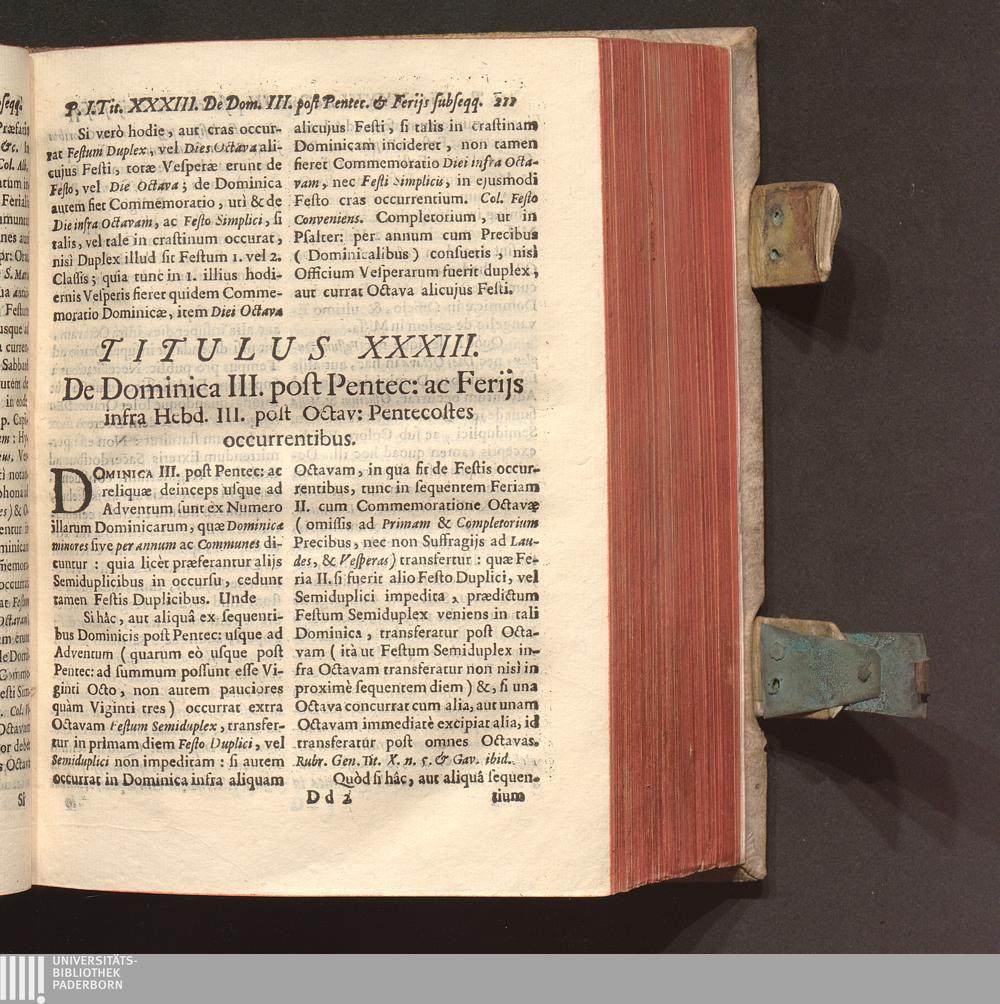 P. I. Tit. XXXIII. De Dom. III. post Pentec. & Ferijs subseqq. 211
Si verò hodie, aut cras occur-
rat Festum Duplex, vel Dies Octava ali-
cujus Festi, totæ Vesperæ erunt de
Festo, vel Die Octava; de Dominica
autem fiet Commemoratio, utì & de
Die infra Octavam, ac Festo Simplici, si
talis, vel tale in crastinum occurat,
nisi Duplex illud sit Festum 1. vel 2.
Classis; quia tunc in 1. illius hodi-
ernis Vesperis fieret quidem Comme-
moratio Dominicæ, item Diei Octava
alicujus Festi, si talis in crastinam
Dominicam incideret, non tamen
fieret Commemoratio Diei infra Octa-
vam, nec Festi Simplicis, in ejusmodi
Festo cras occurrentium. Col. Festo
Conveniens. Completorium, ut in
Psalter: per annum cum Precibus
(Dominicalibus) consuetis, nisi
Officium Vesperarum fuerit duplex,
aut currat Octava alicujus Festi.
TITULUS XXXIII.
De Dominica III. post Pentec: ac Ferijs
infra Hebd. III. post Octav: Pentecostes
occurrentibus.
DOMINICA III. post Pentec: ac
reliquæ deinceps usque ad
Adventum sunt ex Numero
illarum Dominicarum, quæ Dominica
minores sive per annum ac Communes di-
cuntur : quia licèt præferantur alijs
Semiduplicibus in occursu, cedunt
tamen Festis Duplicibus. Unde
Si hâc, aut aliquâ ex sequenti-
bus Dominicis post Pentec: usque ad
Adventum (quarum eò usque post
Pentec: ad summum possunt esse Vi-
ginti Octo, non autem pauciores
quàm Viginti tres) occurrat extra
Octavam Festum Semiduplex, transfer-
tur in primam diem Festo Duplici, vel
Semiduplici non impeditam : si autem
occurrat in Dominica infra aliquam
Octavam, in qua fit de Festis occur-
rentibus, tunc in sequentem Feriam
II. cum Commemoratione Octavæ
(omissis ad Primam & Completorium
Precibus, nec non Suffragijs ad Lau-
des, & Vesperas) transfertur : quæ Fe-
ria II. si fuerit alio Festo Duplici, vel
Semiduplici impedita, prædictum
Festum Semiduplex veniens in tali
Dominica, transferatur post Octa-
vam (ità ut Festum Semiduplex in-
fra Octavam transferatur non nisi in
proximè sequentem diem) &, si una
Octava concurrat cum alia, aut unam
Octavam immediatè excipiat alia, id
transferatur post omnes Octavas.
Rubr. Gen. Tit. X. n. 5. & Gav. ibid.
Quòd si hâc, aut aliquâ sequen-
D d 2
tium
UNIVERSITÄTS-
BIBLIOTHEK
PADERBORN